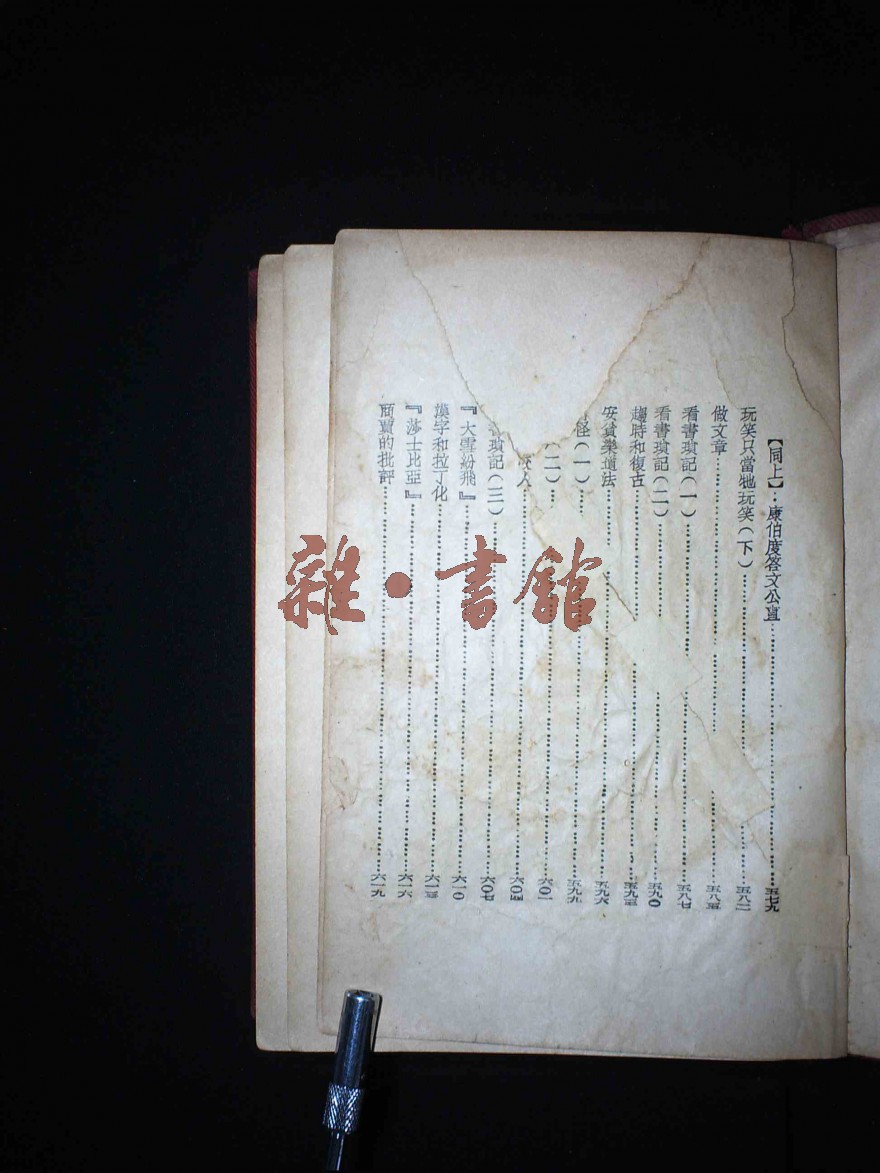 【同上】·康伯度答文公直……五七九
玩笑只當牠玩笑(下)……五八二
做文章……五八五
看書瑣記(一)……五八七
看書瑣記(二)……五九〇
趨時和復古……五九三
安貧樂道法……五九六
怪(一)……五九九
(二)……六〇一
人……六〇四
瑣記(三)……六〇七
『大雪紛飛』……六一〇
漢字和拉丁化……六一三
『莎士比亞』……六一六
商賈的批評……六一九
雜·書館